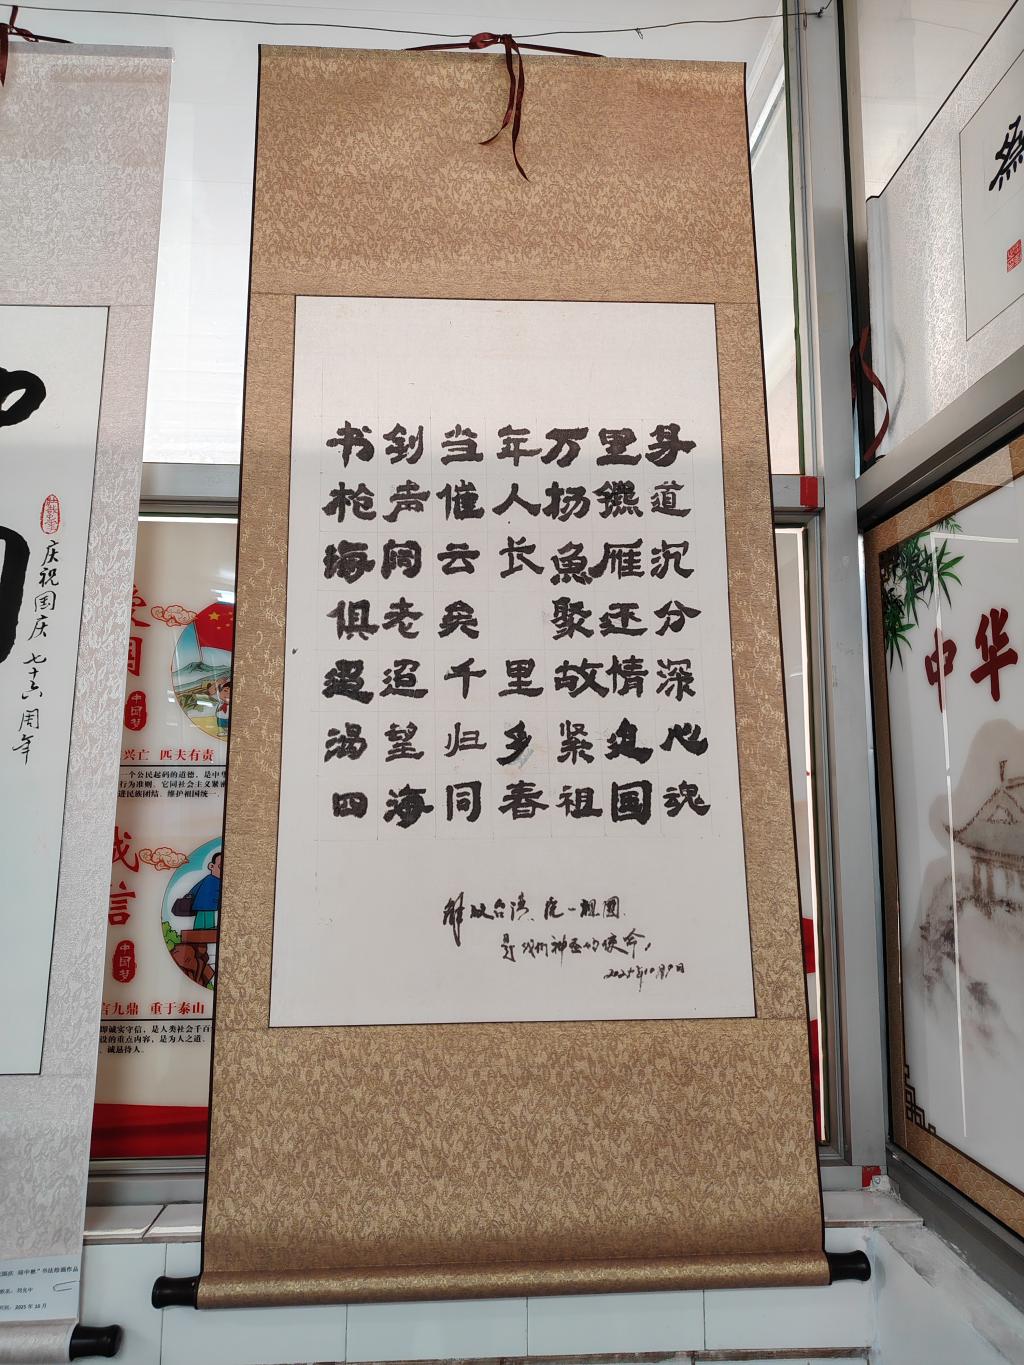 书剑当年万里寻
枪声催人扬鑣道
海阔云长鱼雁沉
俱老矣 聚还分
遥迢千里故情深
渴望归乡紧连心
四海同春祖国魂
解放台湾、统一祖国
是我们神圣的使命,
2025年10月9日
庆祝国庆七十六周年
爱国
中国梦
兴亡 匹夫有责
一个公民起码的道德，是中华
行为准则。它同社会主义紧密
进民族团结、维护祖国统一、
诚信
中国梦
言九鼎 重于泰山
即诚实守信，是人类社会千百
设的重点内容，是为人之道、
、诚恳待人。
中华
2025 年 10 月